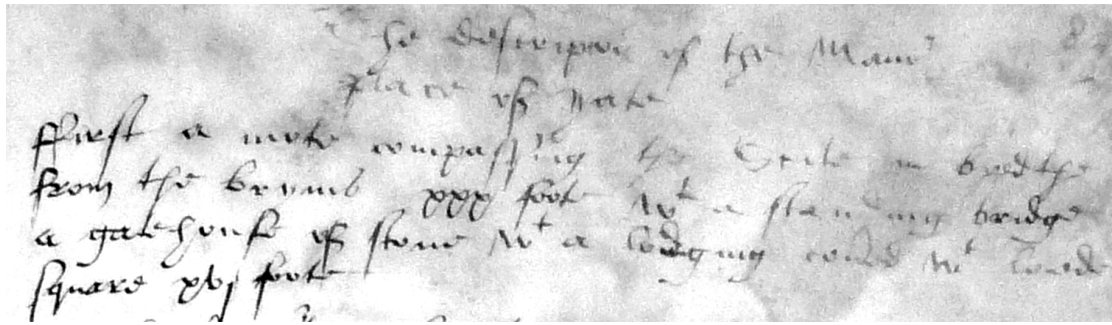 The descripcon of the Manor
place of Yate
ffirst a mote compassyng the Scite in bredthe
from the brymb xxx foote wt a standing bridge
a gatehouse of stone wt a lodging coůd wt leade
square xvj foote